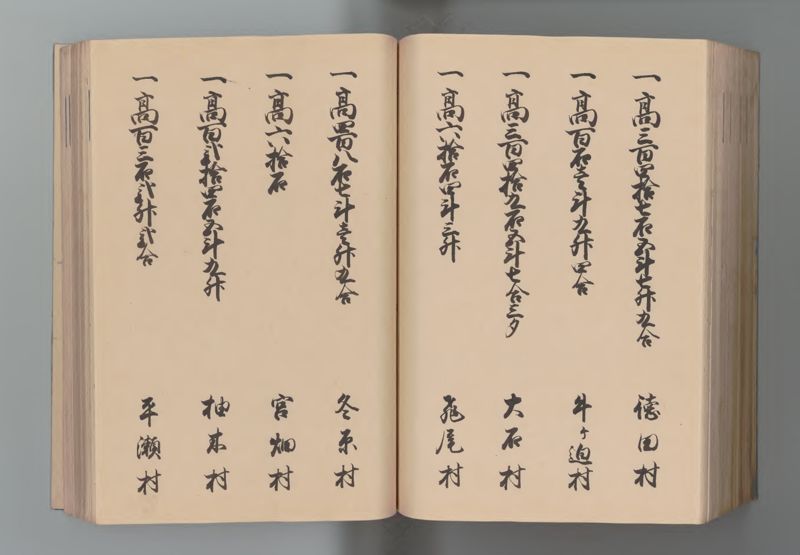 一高三百四拾七石五斗七升九合 徳田村
一高百石壱斗九升四合 牛ケ迫村
一高三百四拾九石五斗七合三夕 大石村
一高六拾石四斗三升 飛尾村
一高四百八石七斗壱升九合 冬原村
一高六拾石 宮畑村
一高百弐拾四石五斗九升 柚木村
一高百三石弐升弐合 平瀬村